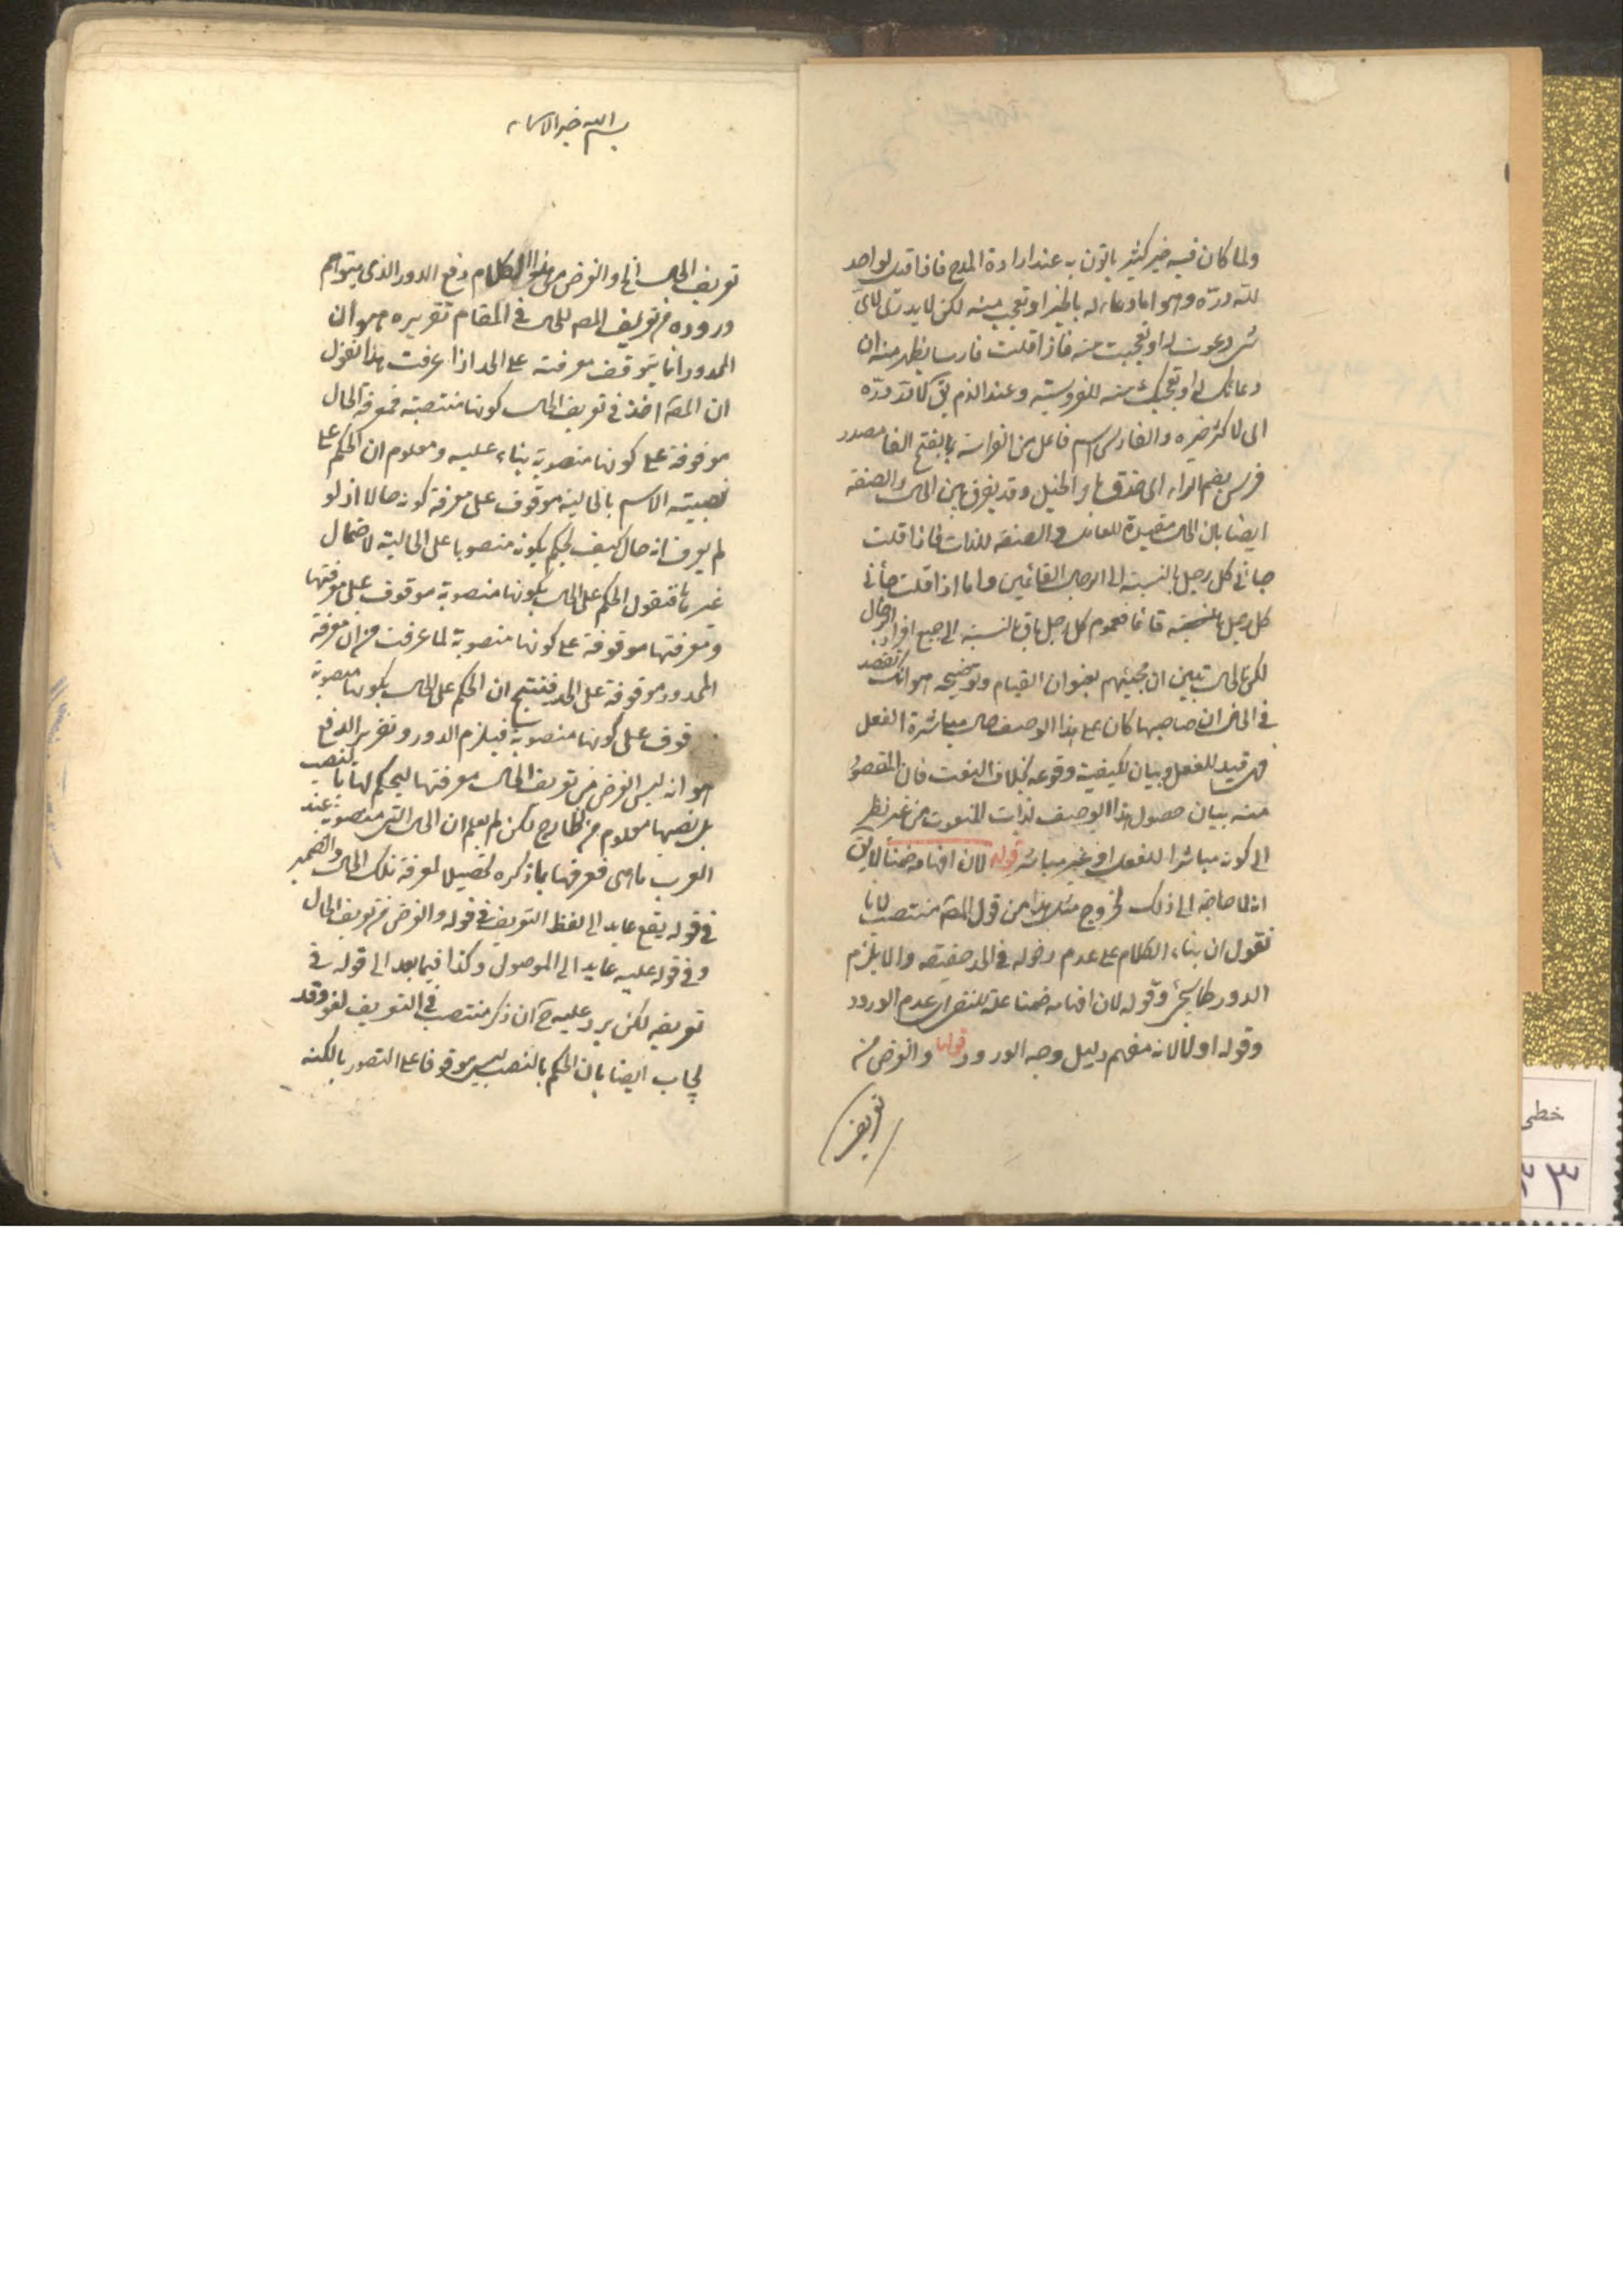 ولما كان فيه خير كثير ياتون به عند ارادة المدح فاذا قيل لواحد
لله درّه وهو اما دعاء له بالخير او تعجب منه لكن لا يدرى لاى
شئ دعوت له او تعجبت منه فاذا قلت فارسا يظهر منه ان
دعائك له او تعجبك منه للفروسية وعند الذم يق لا لله درّه
اى لا كثر خيره والفارس اسم فاعل من الفراسة بالفتح الفا مصدر
فرس بضم الراء اى حذق بامر الخيل وقد يفرق بين الحال والصفة
ايضا بان الحال مقيدة للعامل والصفة للذات فاذا قلت
جائنى كل رجل بالنسبة الى الرجال القائمين واما اذا قلت جائنى
كل رجل قائما فعموم كل رجل باق بالنسبة الى جميع افراد الرجال
لكن الحال تبين ان مجيئهم بعنوان القيام وتوضيحه هو انك تقصد
فى الحال ان صاحبها كان على هذا الوصف حال مباشرة الفعل
فهى قيد للفعل وبيان لكيفية وقوعه بخلاف النعت فان المقصود
منه بيان حصول هذا الوصف لذات المنعوت من غير نظر
الى كونه مباشرا للفعل او غير مباشر قوله لان افهامه ضمنا لا يق
انه لا حاجة الى ذلك لخروج مثل هذا من قول المصـ منتصب لانا
نقول ان بناء الكلام على عدم دخوله فى الحد حقيقة والا يلزم
الدور كما سيجئ وقوله لان افهامه ضمنا علة للنفى اى عدم الورود
وقوله اولا لانه مفهم دليل وجه الورود قوله والغرض من
تعريف
بسم الله خير الاسماء
تعريف الحال الخ والغرض من هذا الكلام دفع الدور الذى يتوهم
وروده من تعريف المصـ للحال فى المقام تقريره هو ان
المحدود انما يتوقف معرفته على الحد اذا عرفت هذا نقول
ان المصـ اخذ فى تعريف الحال كونها منتصبة فمعرفة الحال
موقوفة على كونها منصوبة بناء عليه ومعلوم ان الحكم على
نصبية الاسم بالحالية موقوف على معرفة كونه حالا اذ لو
لم يعرف انه حال كيف يحكم بكونه منصوبا على الحالية لاحتمال
غيرها فنقول الحكم على الحال بكونها منصوبة موقوف على معرفتها
ومعرفتها موقوفة على كونها منصوبة لما عرفت من ان معرفة
المحدود موقوفة على الحد فنتج ان الحكم على الحال بكونها منصوبة
قوف على كونها منصوبة فيلزم الدور وتقرير الدفع
هو انه ليس الغرض من تعريف الحال معرفتها ليحكم لها بالنصب
بل نصبها معلوم من الخارج لكن لم يعلم ان الحال التى منصوبة عند
العرب ما هى فعرفها بما ذكره تحصيلا لمعرفة تلك الحال والضمير
فى قوله يقع عايد الى لفظ التعريف فى قوله والغرض من تعريف الحال
وفى قوله عليه عايد الى الموصول وكذا فيما بعد الى قوله فى
تعريفه لكن يرد عليه ح ان ذكر منتصب فى التعريف لغو وقد
يجاب ايضا بان الحكم بالنصب ليس موقوفا على التصور بالكنه
خطى